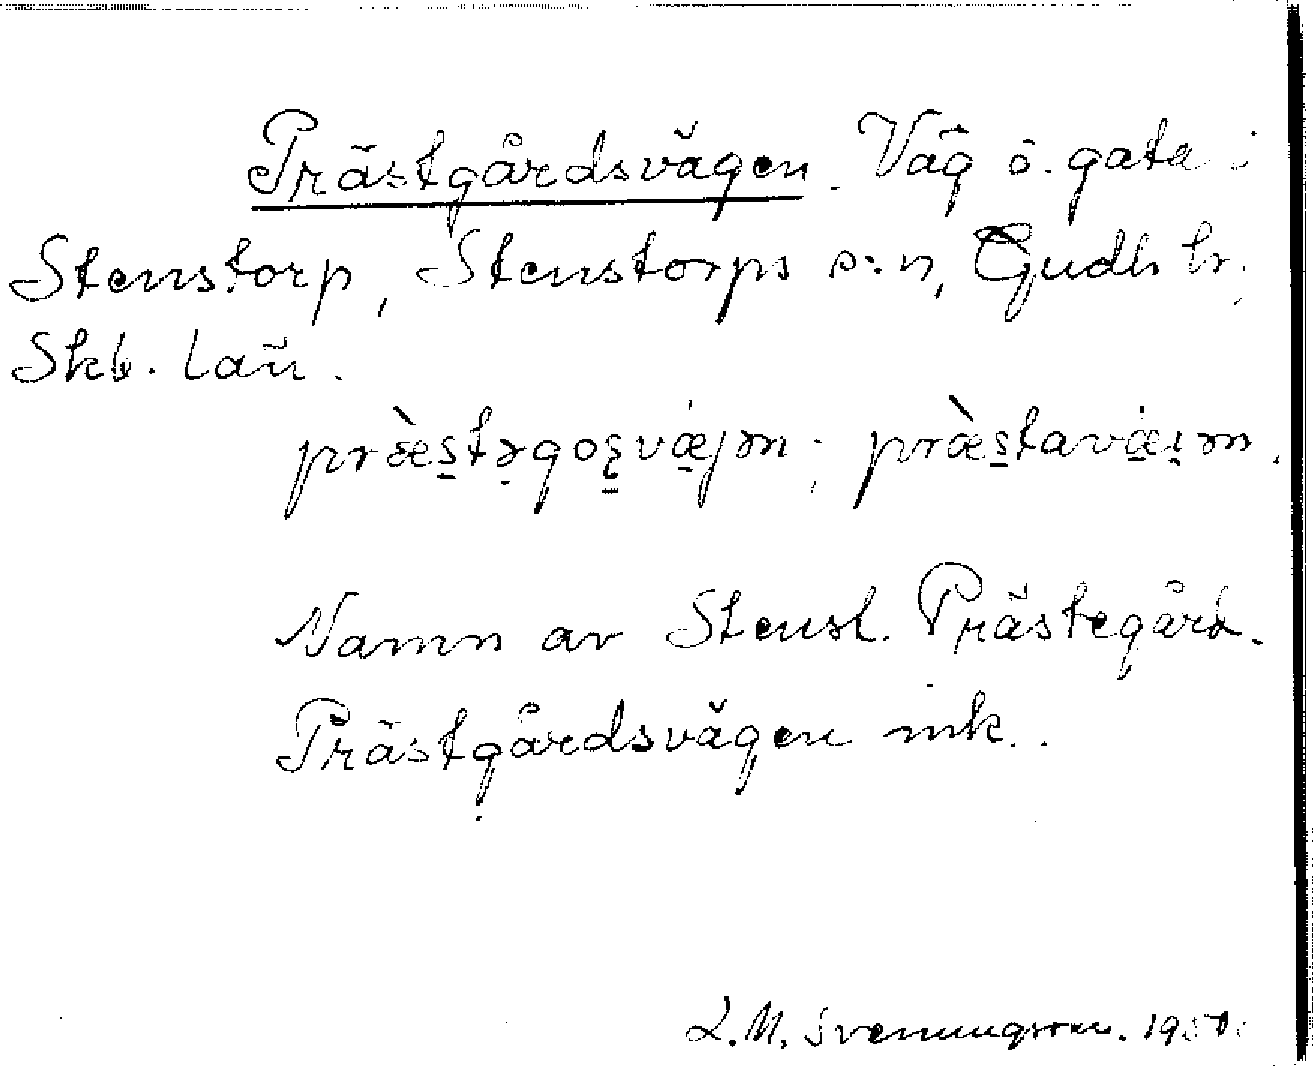 Prästgårdsvägen. Väg o. gata i
Stenstorp, Stenstorps s:n, Gudh hr,
Skb. län.
præ̀s̠tə̣goş̠vǽ̠jən; præ̀s̠tavǽ̠jən.
Namn av Stenst. Prästegård.
Prästgårdsvägen ink.
L.M. Svenungsson. 1950.